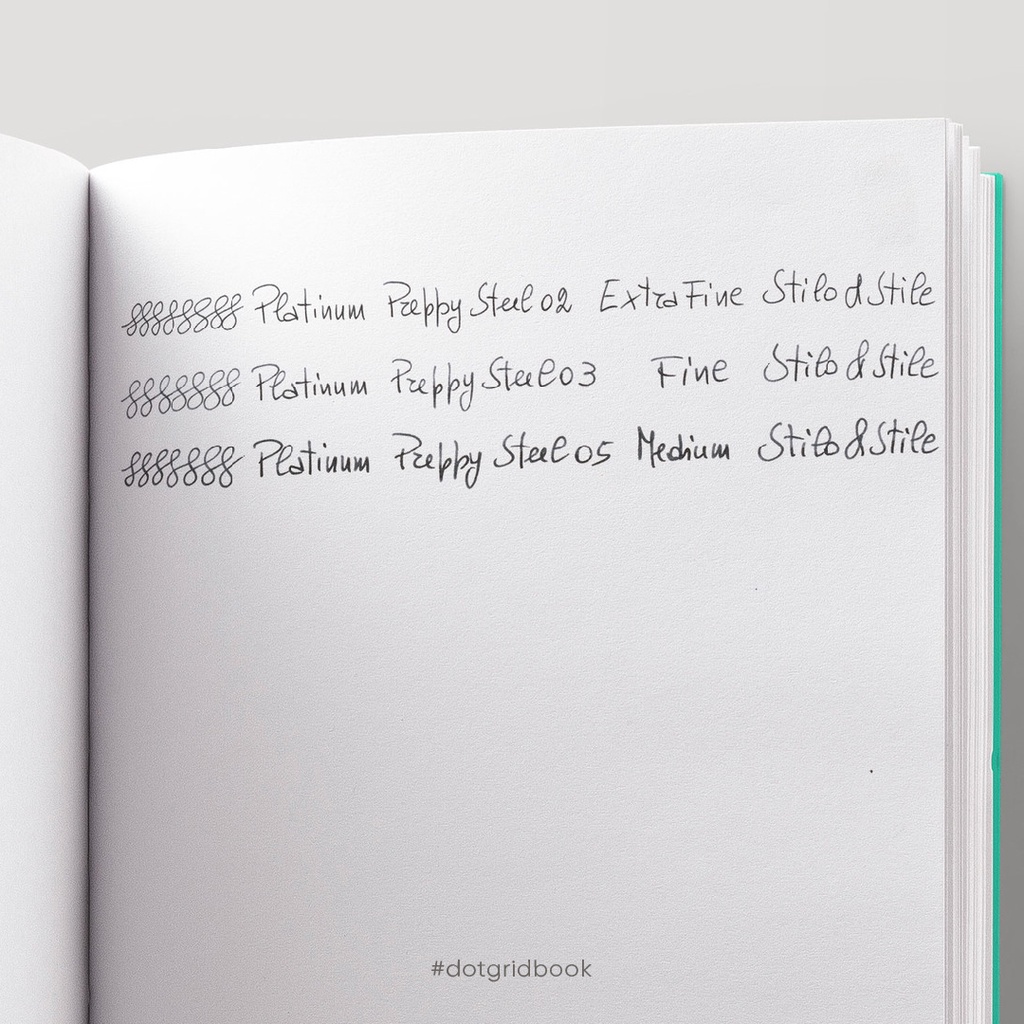 Platinum Preppy Steel 02 Extra Fine Stilo & Stile
Platinum Preppy Steel 03 Fine Stilo & Stile
Platinum Preppy Steel 05 Medium Stilo & Stile
#dotgridbook